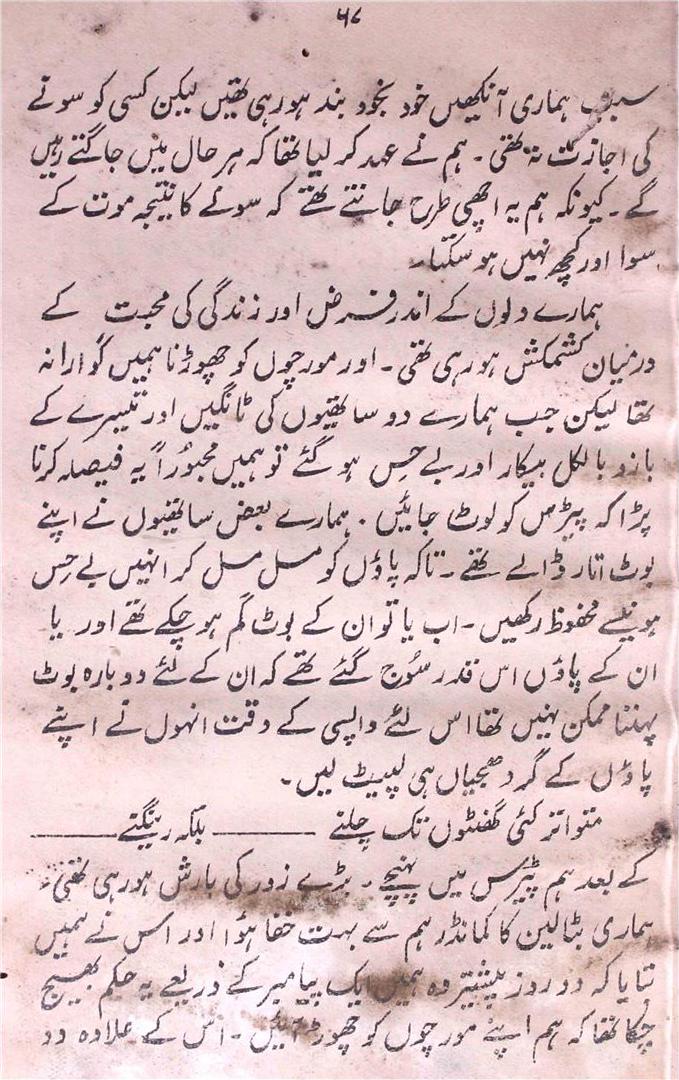 ۵۷
سبب ہماری آنکھیں خود بخود بند ہو رہی تھیں لیکن کسی کو سونے
کی اجازت نہ تھی ۔ ہم نے عہد کر لیا تھا کہ ہر حال میں جاگتے رہیں
گے ۔ کیونکہ ہم یہ اچھی طرح جانتے تھے کہ سونے کا نتیجہ موت کے
سوا اور کچھ نہیں ہو سکتا ۔
ہمارے دلوں کے اندر فرض اور زندگی کی محبت کے
درمیان کشمکش ہو رہی تھی ۔ اور مورچوں کو چھوڑنا ہمیں گوارا نہ
تھا لیکن جب ہمارے دو ساتھیوں کی ٹانگیں اور تیسرے کے
بازو بالکل بیکار اور بے حِس ہو گئے تو ہمیں مجبوراً یہ فیصلہ کرنا
پڑا کہ پیڑس کو لوٹ جائیں ۔ ہمارے بعض ساتھیوں نے اپنے
بوٹ اتار ڈالے تھے ۔ تاکہ پاؤں کو مسل مسل کر انہیں بے حِس
ہونیسے محفوظ رکھیں ۔ اب یا تو ان کے بوٹ گم ہو چکے تھے اور یا
ان کے پاؤں اس قدر سُوج گئے تھے کہ ان کے لئے دوبارہ بوٹ
پہننا ممکن نہیں تھا اس لئے واپسی کے وقت انہوں نے اپنے
پاؤں کے گرد دھجیاں ہی لپیٹ لیں ۔
متواتر کئی گھنٹوں تک چلنے ــــــــ بلکہ رینگنے ــــــــ
کے بعد ہم پیڑس میں پہنچے ۔ بڑے زور کی بارش ہو رہی تھی ۔
ہماری بٹالین کا کمانڈر ہم سے بہت خفا ہؤا اور اس نے ہمیں
بتایا کہ دو روز پیشتر وہ ہمیں ایک پیامبر کے ذریعے یہ حکم بھیج
چکا تھا کہ ہم اپنے مورچوں کو چھوڑ آئیں ۔ اس کے علاوہ دو